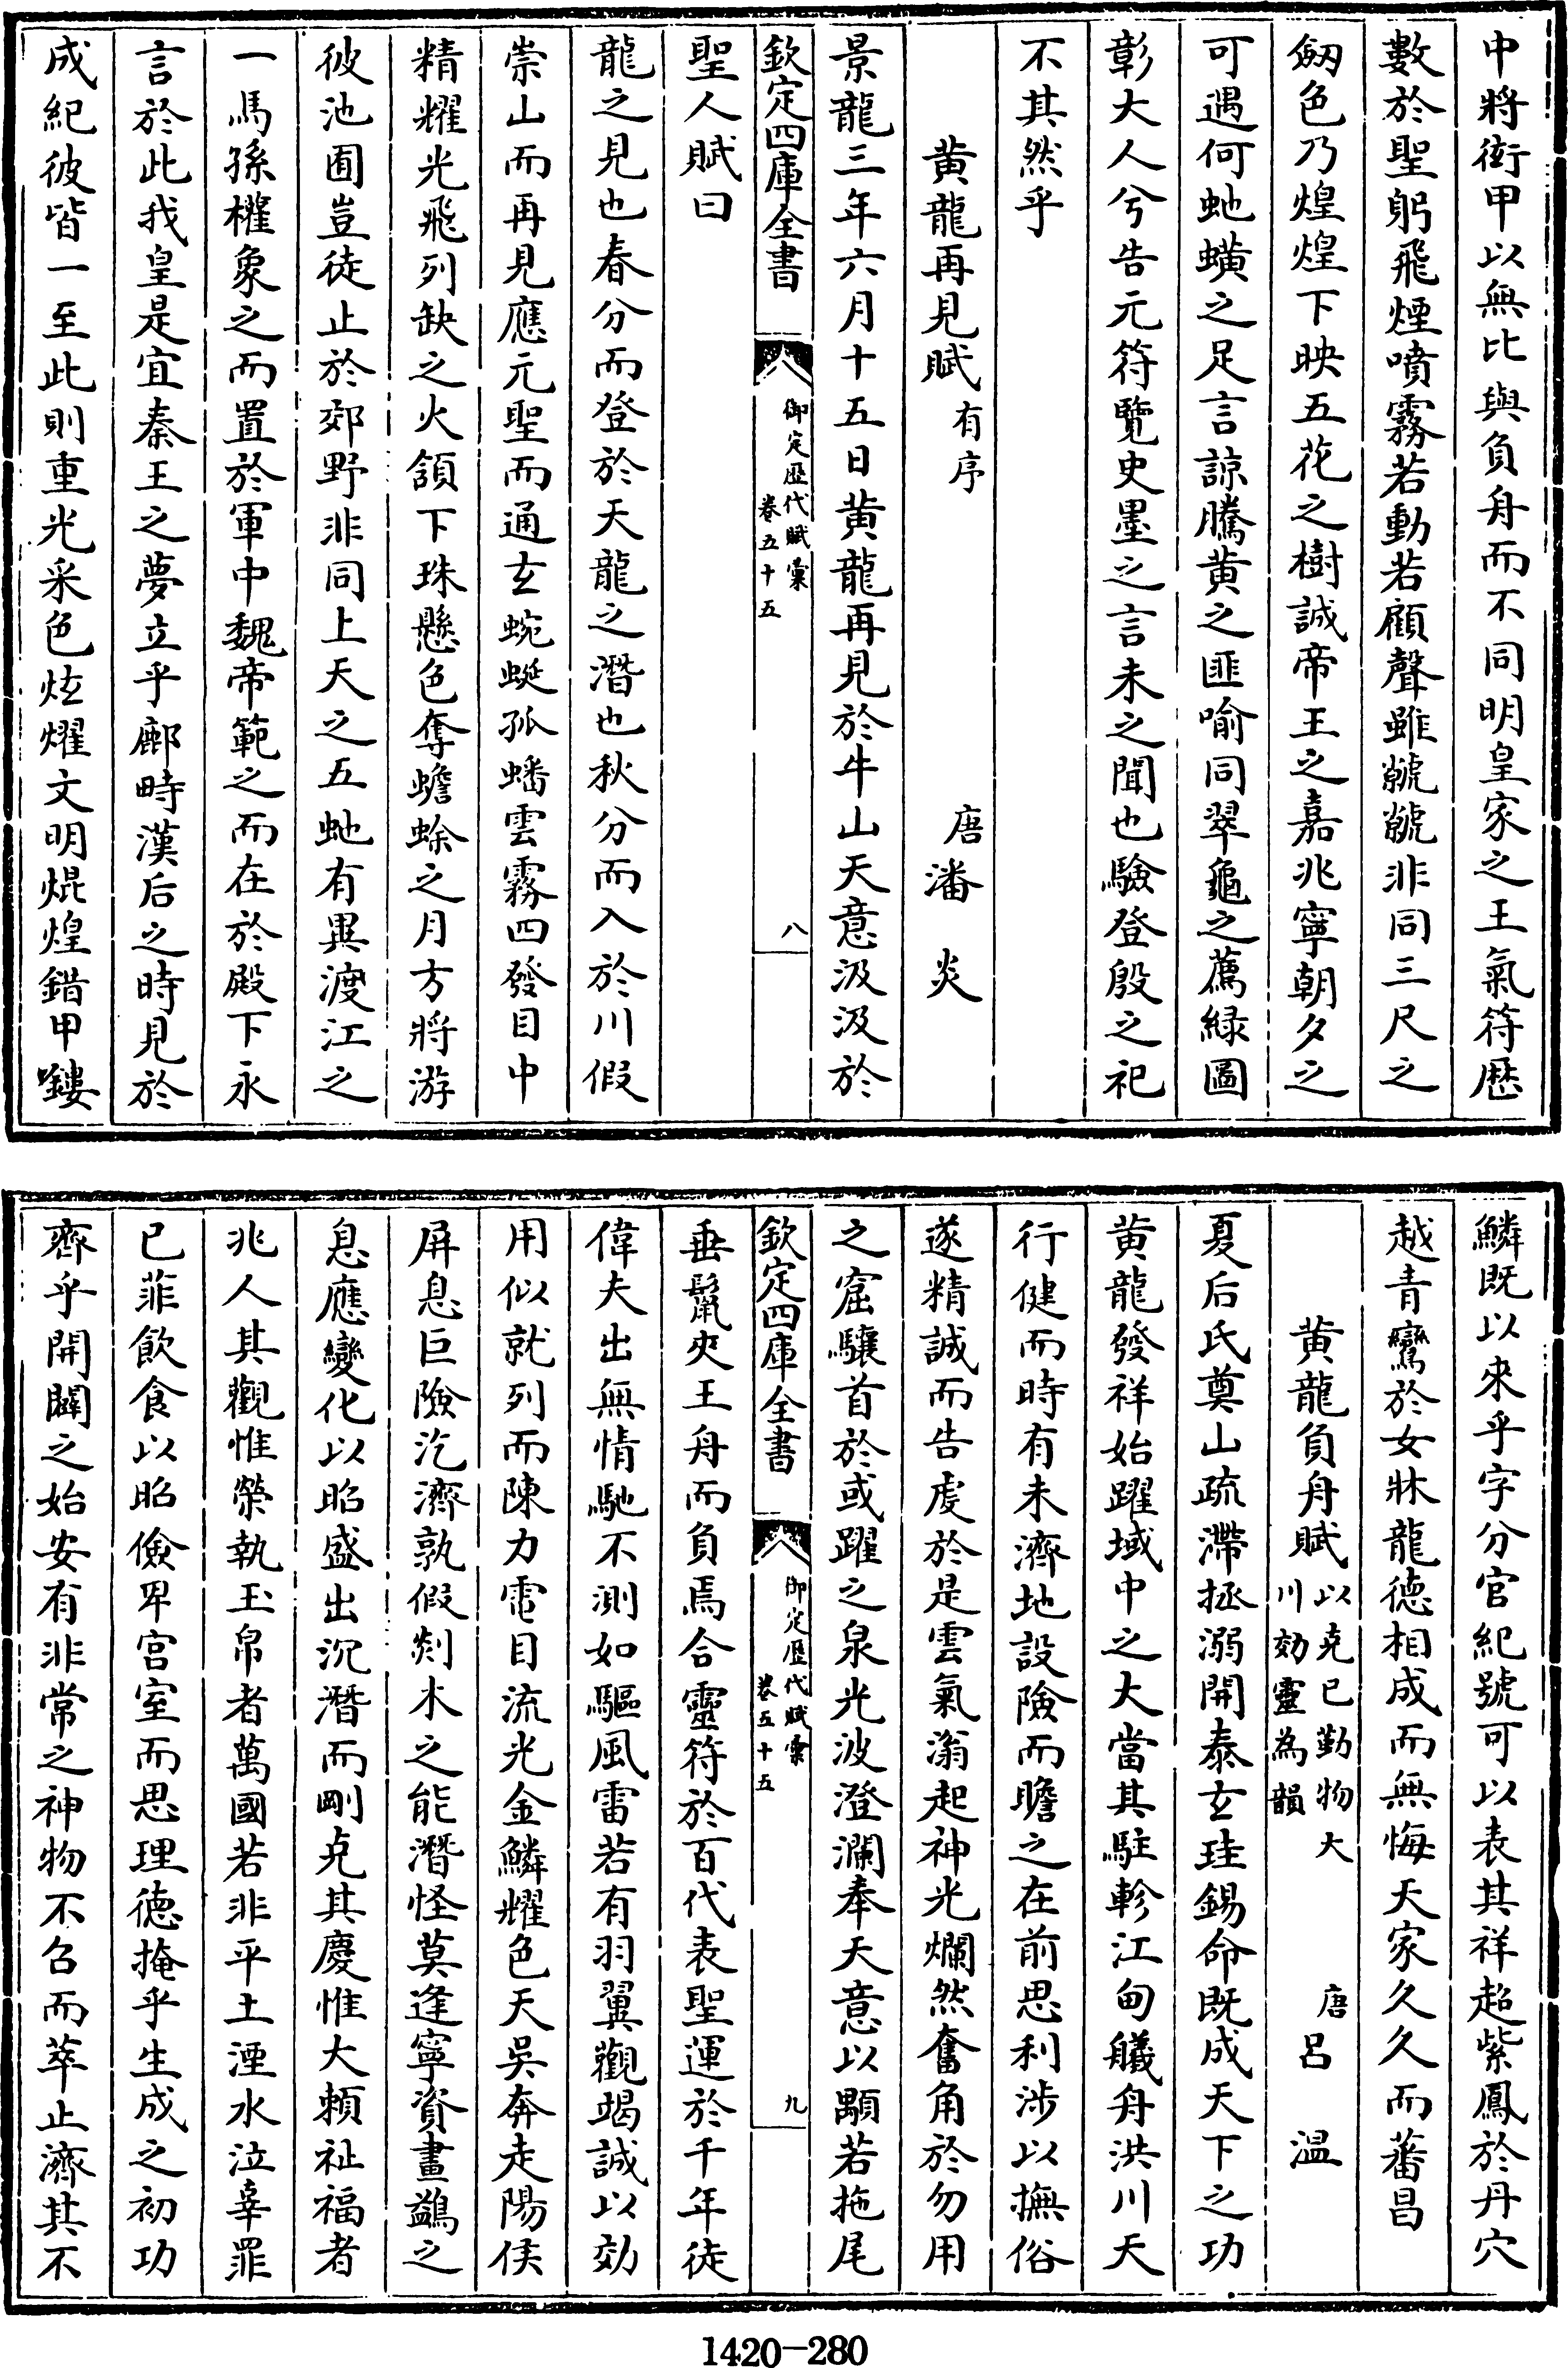 中將銜甲以無比與負舟而不同明皇家之王氣符歴
數於聖躬飛煙噴霧若動若顧聲雖虩虩非同三尺之
劒色乃煌煌下映五花之樹誠帝王之嘉兆寧朝夕之
可遇何虵蟥之足言諒騰黄之匪喻同翠龜之薦緑圖
彰大人兮告元符覽史墨之言未之聞也驗登殷之祀
不其然乎
黄龍再見賦有序 唐潘炎
景龍三年六月十五日黄龍再見於牛山天意汲汲於
欽定四庫全書 御定歴代賦彙 卷五十五 八
聖人賦曰
龍之見也春分而登於天龍之潛也秋分而入於川假
崇山而再見應元聖而通玄蜿蜒孤蟠雲霧四發目中
精耀光飛列缺之火頷下珠懸色奪蟾蜍之月方將游
彼池囿豈徒止於郊野非同上天之五虵有異渡江之
一馬孫權象之而置於軍中魏帝範之而在於殿下永
言於此我皇是宜秦王之夢立乎鄜畤漢后之時見於
成紀彼皆一至此則重光采色炫燿文明焜煌錯甲鏤
鱗既以來乎字分官紀號可以表其祥超紫鳳於丹穴
越青鸞於女牀龍德相成而無悔天家久久而蕃昌
黄龍負舟賦以克已勤物大川効靈為韻 唐呂温
夏后氏奠山疏滯拯溺開泰玄珪錫命既成天下之功
黄龍發祥始躍域中之大當其駐軫江甸艤舟洪川天
行健而時有未濟地設險而瞻之在前思利涉以撫俗
遂精誠而告虔於是雲氣滃起神光爛然奮角於勿用
之窟驤首於或躍之泉光波澄瀾奉天意以顒若拖尾
欽定四庫全書 御定歴代賦彙 卷五十五 九
垂鬣夾王舟而負焉合靈符於百代表聖運於千年徒
偉夫出無情馳不測如驅風雷若有羽翼觀竭誠以効
用似就列而陳力電目流光金鱗耀色天吳奔走陽侯
屏息巨險汔濟孰假剡木之能潛怪莫逢寧資畫鷁之
息應變化以昭盛出沉潛而剛克其慶惟大頼祉福者
兆人其觀惟榮執玉帛者萬國若非平土湮水泣辜罪
已菲飲食以昭儉卑宫室而思理德掩乎生成之初功
齊乎開闢之始安有非常之神物不召而萃止濟其不
1420-280